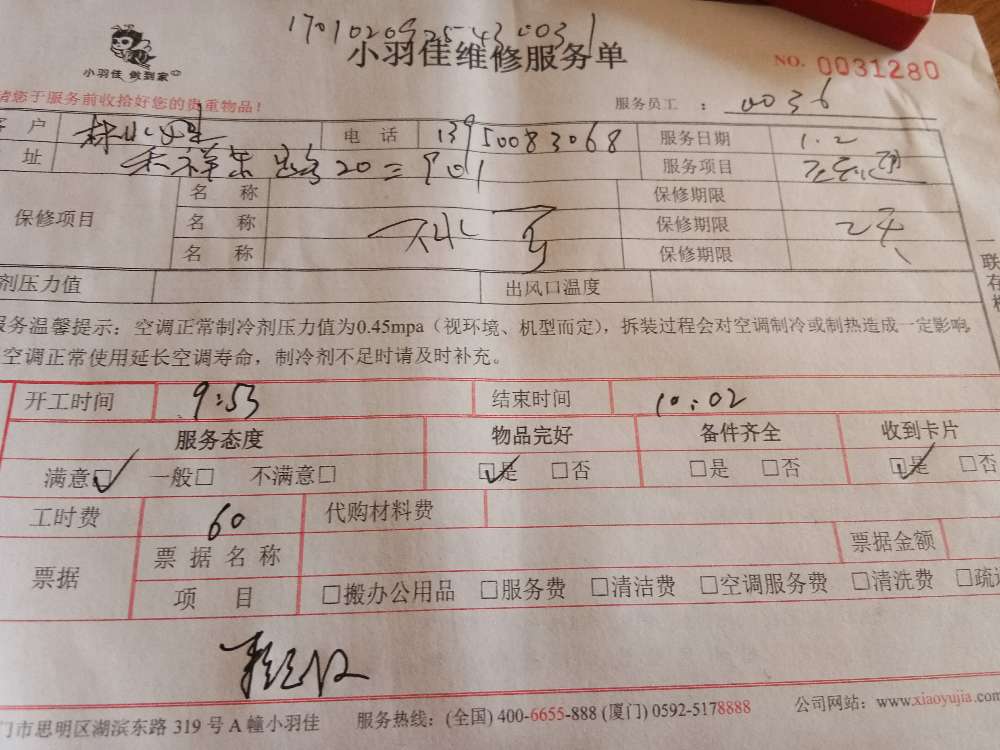 1701020925430031
小羽佳 做到家
小羽佳维修服务单
NO. 0031280
请您于服务前收拾好您的贵重物品！
服务员工 : 0036
客 户 电 话 13950083068 服务日期 1.2
址 禾祥东 20 901 服务项目
保修项目 名 称 保修期限
名 称 保修期限
名 称 保修期限
剂压力值 出风口温度
服务温馨提示：空调正常制冷剂压力值为0.45mpa（视环境、机型而定），拆装过程会对空调制冷或制热造成一定影响，
空调正常使用延长空调寿命，制冷剂不足时请及时补充。
一联存
开工时间 9:53 结束时间 10:02
服务态度 物品完好 备件齐全 收到卡片
满意☑ 一般□ 不满意□ ☑是 □否 □是 □否 ☑是 □否
工时费 60 代购材料费
票据 票 据 名 称 票据金额
项 目 □搬办公用品 □服务费 □清洁费 □空调服务费 □清洗费 □疏
门市思明区湖滨东路 319 号 A 幢小羽佳 服务热线：(全国) 400-6655-888 (厦门) 0592-5178888 公司网站：www.xiaoyujia.com